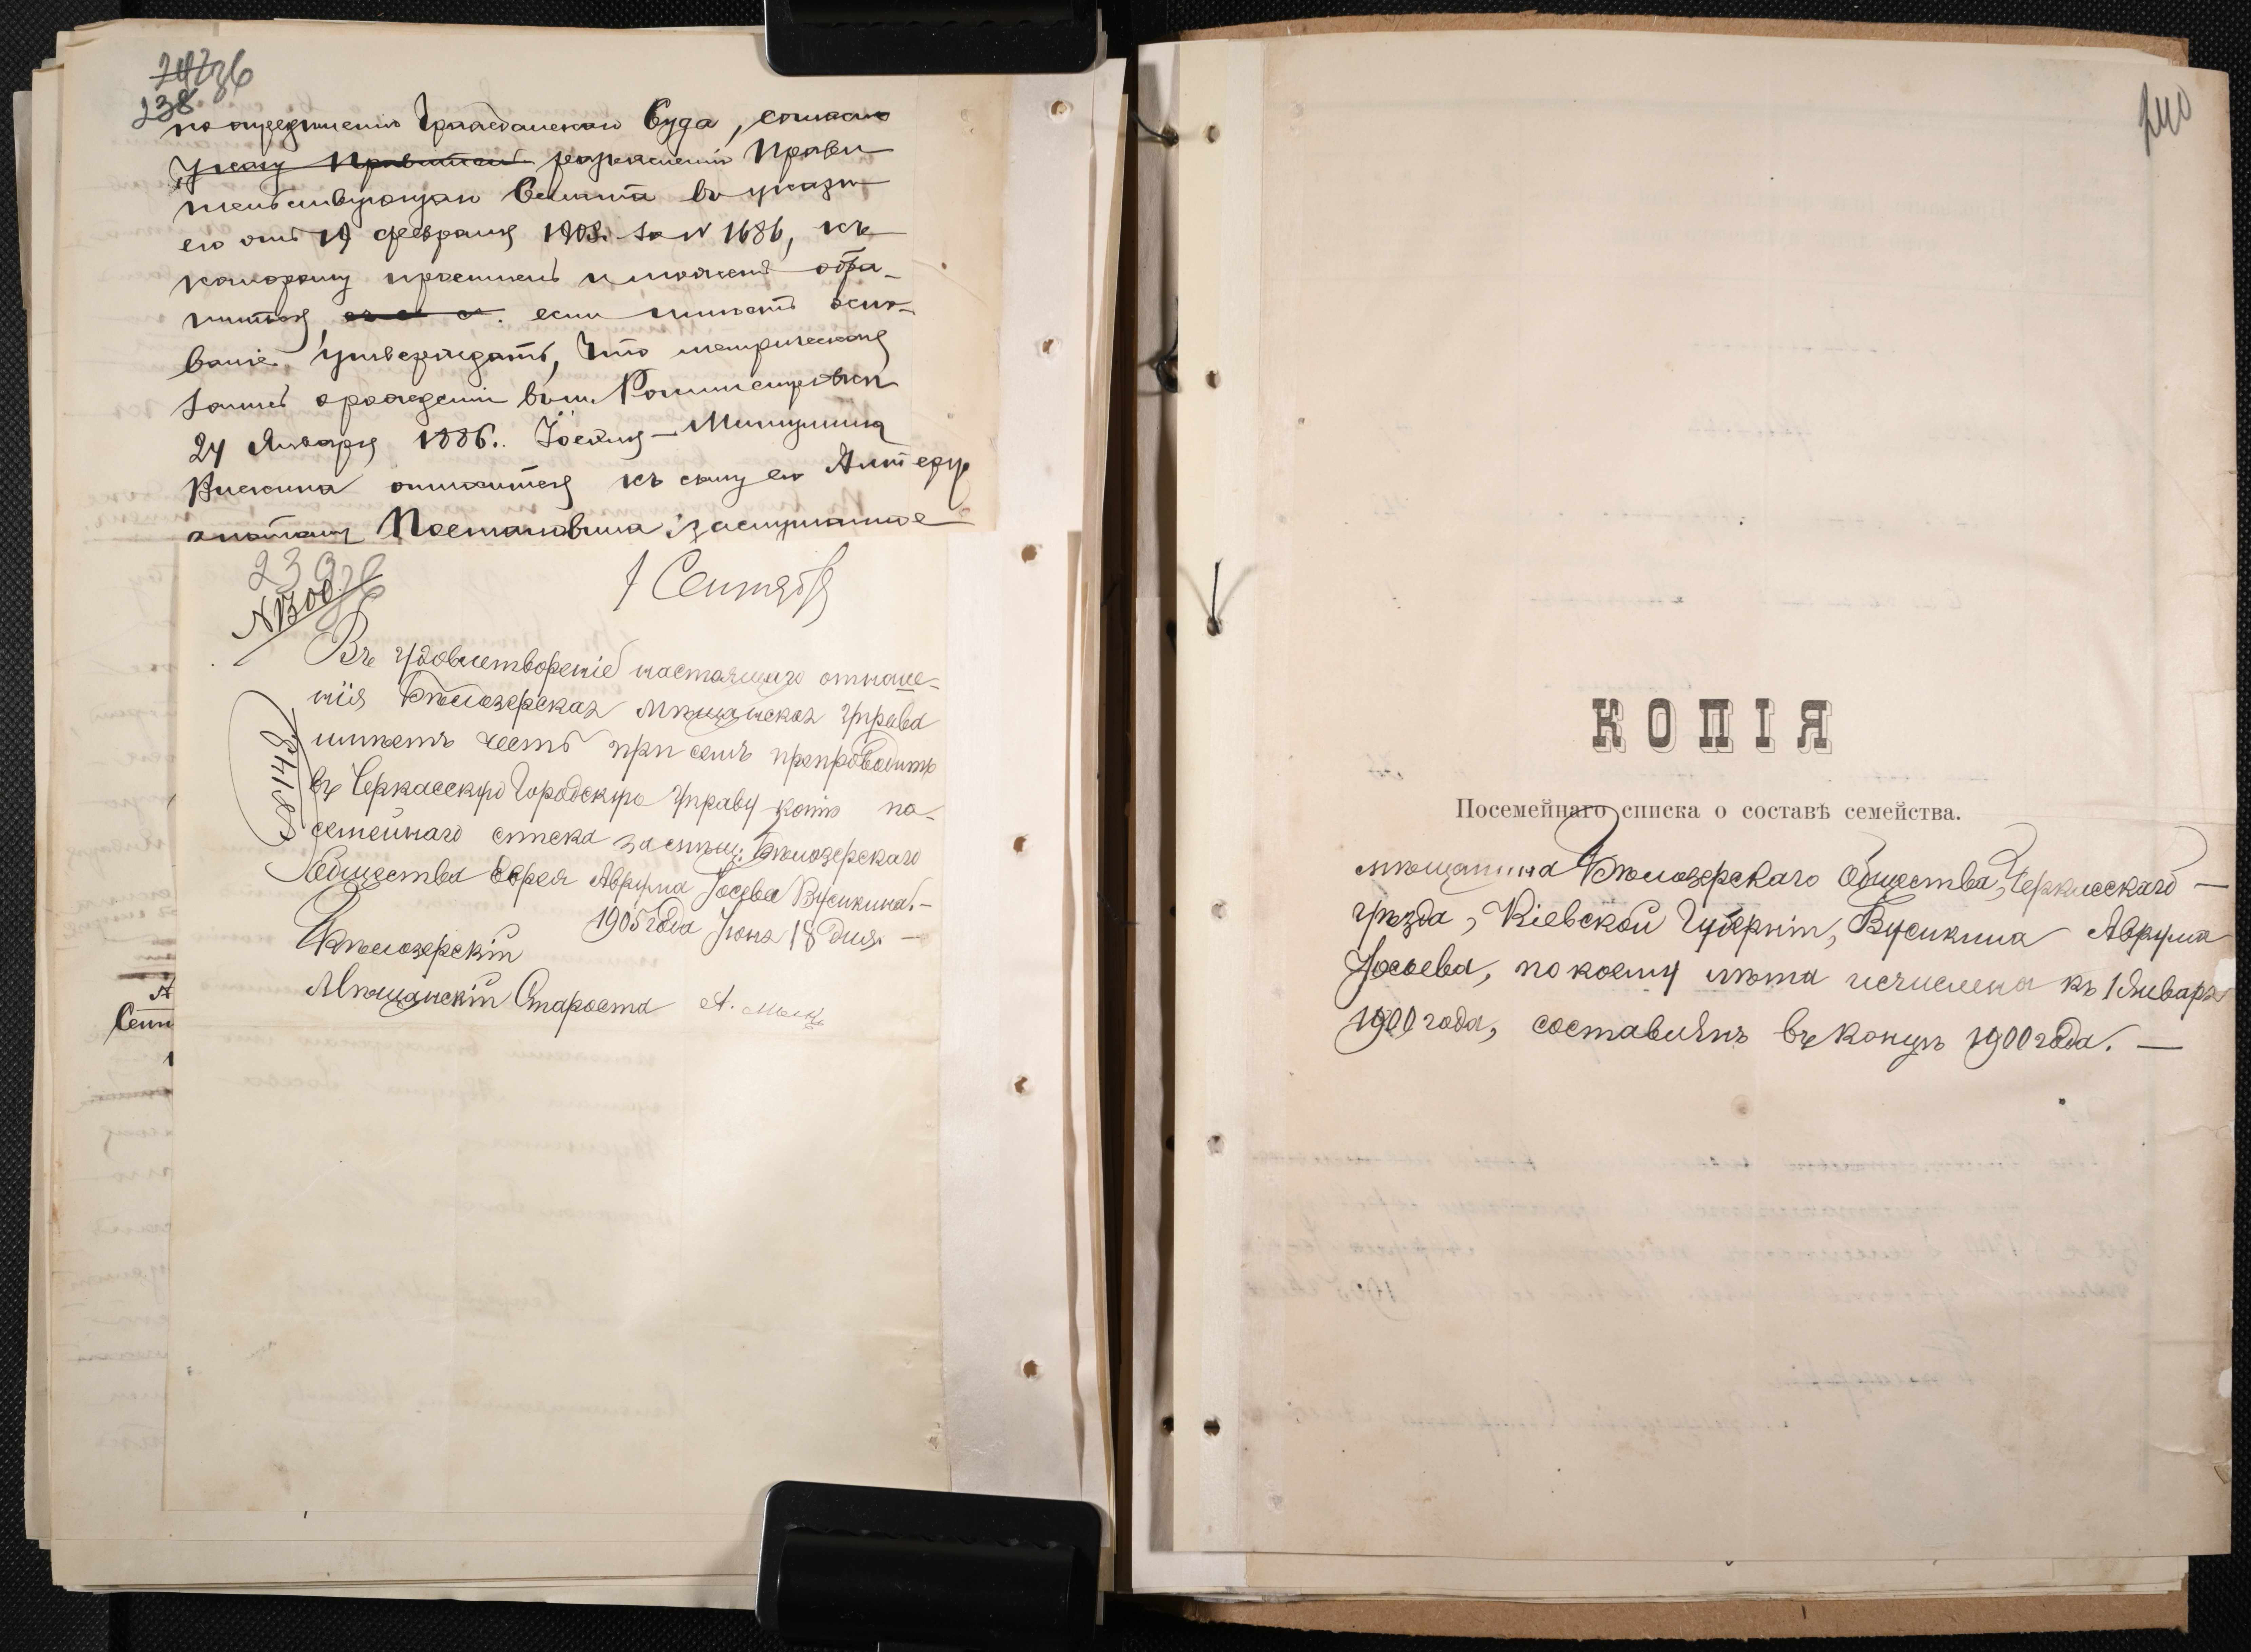 238
по опредѣленію Гражданскаго Суда, согласно
Указу Правител разъясненія Прави
тельствующаго Сената въ указѣ
его отъ 19 февраля 1903. за N 1686, къ
которому проситель и можетъ обра-
титься, если имѣетъ осно-
ваніе утверждать, что метрическая
запись о рожденіи въ м.
24 Января 1886.
относится къ сыну его
Постановила:
239
N 1300.
1 Сентября
Въ удовлетвореніе настоящаго отноше-
нія Бѣлозерская Мѣщанская Управа
имѣетъ честь при семъ препроводить
въ Черкасскую Городскую Управу копію по-
семейнаго списка за мѣщ. Бѣлозерскаго
Общества Еврея Аврума Іосева Вусикина.-
1905 года Іюня 18 дня. -
Бѣлозерскій
Мѣщанскій Староста А.
240
КОПІЯ
Посемейнаго списка о составѣ семейства.
мѣщанина Бѣлозерскаго Общества, Черкасскаго -
уѣзда, Кіевской Губерніи, Вусикина Аврума
Іосьева, по коему лѣта исчислены къ 1 Января
1900 года, составленъ въ концѣ 1900 года. -